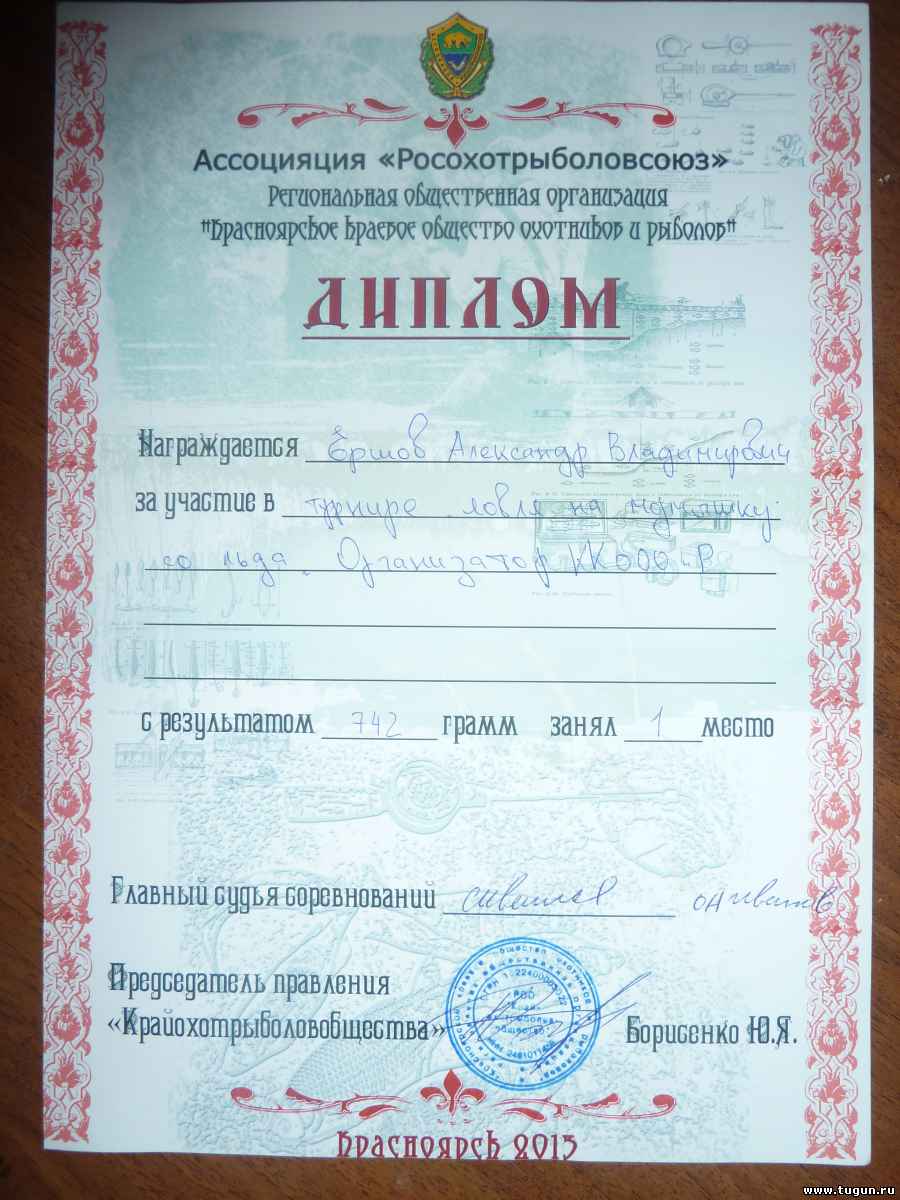 Ассоцияция «Росохотрыболовсоюз»
Региональная общественная организация
"Красноярское краевое общество охотников и рыболов"
ДИПЛОМ
Награждается Ершов Александр Владимирович
за участие в турнире ловля на мормышку
со льда. Организатор ККОООиР
с результатом 742 грамм занял 1 место
Главный судья соревнований
Председатель правления
«Крайохотрыболовобщества» Борисенко Ю.Я.
Красноярск 2015
www.tugun.ru